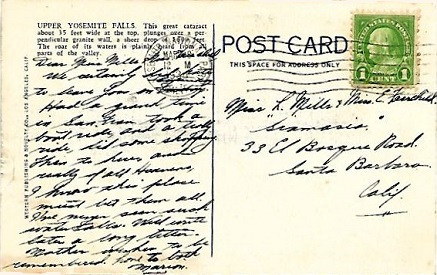 UPPER YOSEMITE FALLS. This great cataract
about 35 feet wide at the top, plunges over a per-
pendicular granite wall, a sheer drop of 1430 feet.
The roar of its waters is plainly heard from all
parts of the valley.
POST CARD
THIS SPACE FOR ADDRESS ONLY
UNITED STATES POSTAGE
1 CENT 1
WESTERN PUBLISHING & NOVELTY CO., LOS ANGELES, CALIF.
Dear Miss Mills
We certainly
to leave you
Had a grand trip
in San Fran took a
boat ride and a
ride, did some shopping
then to here, and
really of all Heavens,
I know this place
must be them all
I've never seen such
waterfalls. Will write
later a long letter.
Mother wishes to be
remembered, love to both
Marion.
Miss L. Mills & Miss E. Fairchild
"Siamasia"
33 El Bosque Road.
Santa Barbara
Calif.